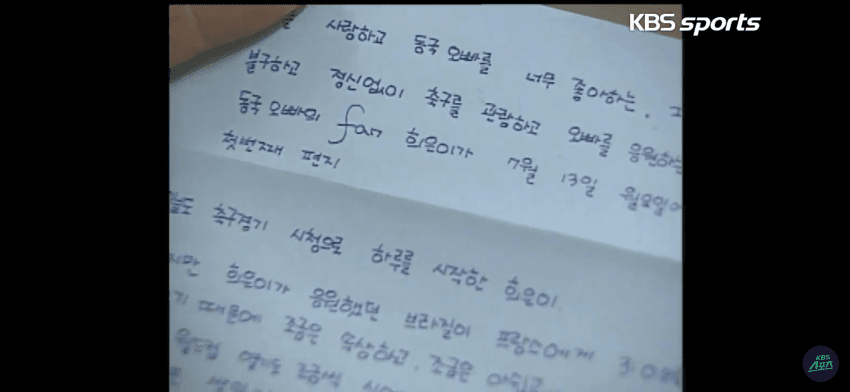 KBS sports
를 사랑하고 동국 오빠를 너무 좋아하는.
불구하고 정신없이 축구를 관람하고 오빠를 응원하는
동국 오빠의 fan 희은이가 7월 13일 월요일에
첫번째 편지
축구경기 시청으로 하루를 시작한 희은이.
지만 희은이가 응원했던 브라질이 프랑스에게 3:0
기 때문에 조금은 속상하고, 조금은 아쉽고
월드컵 열기도 조금씩
KBS 스포츠